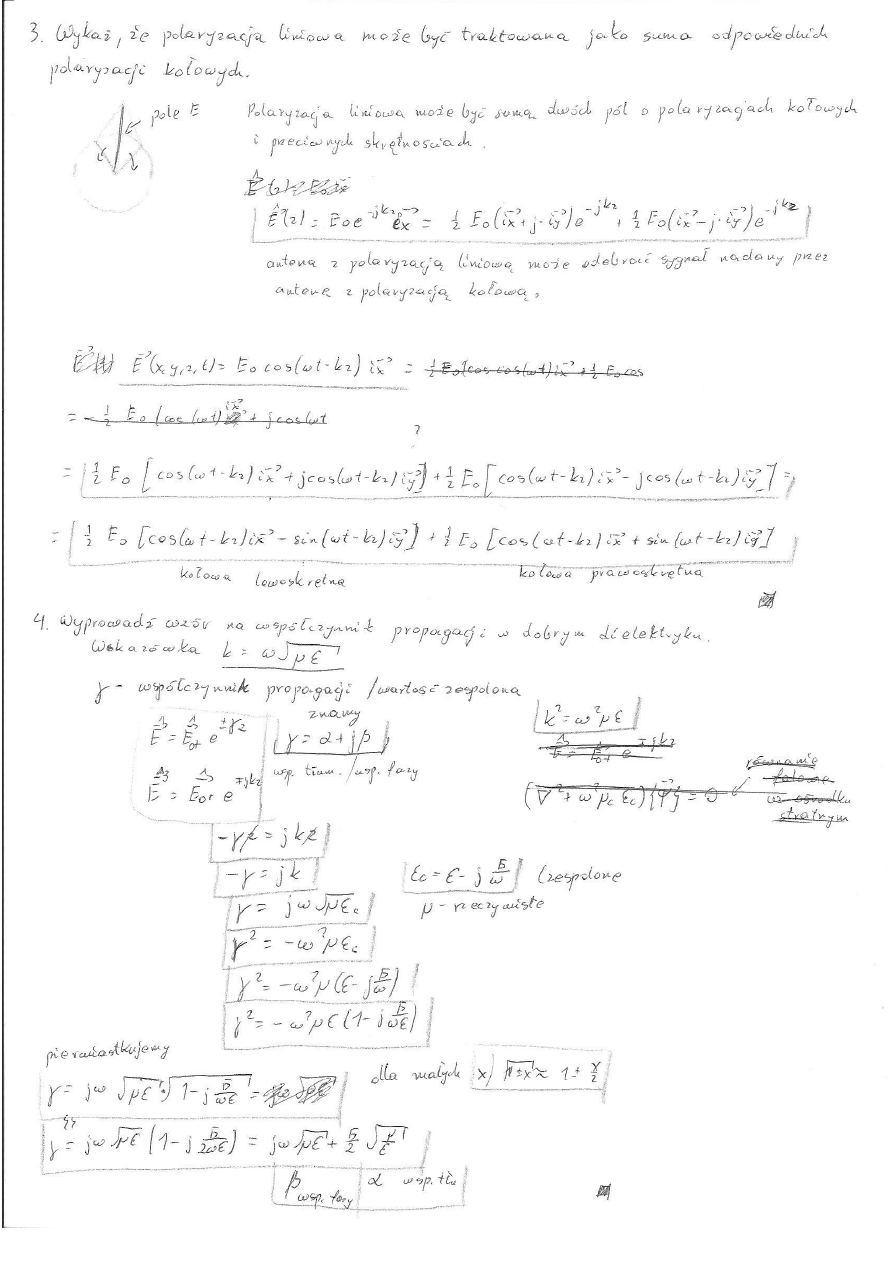 3. Wykaż, że polaryzacja liniowa może być traktowana jako suma odpowiednich
polaryzacji kołowych.
pole E
Polaryzacja liniowa może być sumą dwóch pól o polaryzacjach kołowych
i przeciwnych skrętnościach.
Ê(z) = E₀e^{-jkz} e⃗x = ½ E₀(i⃗x + j·i⃗y)e^{-jkz} + ½ E₀(i⃗x - j·i⃗y)e^{-jkz}
antena z polaryzacją liniową może odebrać sygnał nadany przez
antenę z polaryzacją kołową.
E⃗(x,y,z,t) = E₀ cos(ωt-kz) i⃗x =
?
= ½ E₀ [cos(ωt-kz) i⃗x + jcos(ωt-kz) i⃗y] + ½ E₀ [cos(ωt-kz) i⃗x - jcos(ωt-kz) i⃗y] =
= ½ E₀ [cos(ωt-kz) i⃗x - sin(ωt-kz) i⃗y] + ½ E₀ [cos(ωt-kz) i⃗x + sin(ωt-kz) i⃗y]
kołowa lewoskrętna
kołowa prawoskrętna
4. Wyprowadź wzór na współczynnik propagacji w dobrym dielektryku.
Wskazówka k = ω√με
γ - współczynnik propagacji /wartość zespolona
znamy
Ê = Ê₀± e^{±γz}
γ = α + jβ
k² = ω²με
wsp. tłum. /wsp. fazy
Ê = Ê₀± e^{∓jkz}
(∇² + ω²μc εc){ψ⃗} = 0
równanie
falowe
w ośrodku
stratnym
-γz = jkz
-γ = jk
εc = ε - j σ/ω (zespolone
γ = jω√μεc
μ - rzeczywiste
γ² = -ω²μεc
γ² = -ω²μ(ε - jσ/ω)
γ² = -ω²με(1 - jσ/ωε)
pierwiastkujemy
γ = jω √με · √1 - jσ/ωε =
dla małych x) √1±x ≈ 1 ± x/2
γ = jω√με (1 - jσ/2ωε) = jω√με + σ/2 √μ/ε
β wsp. fazy
α wsp. tłu